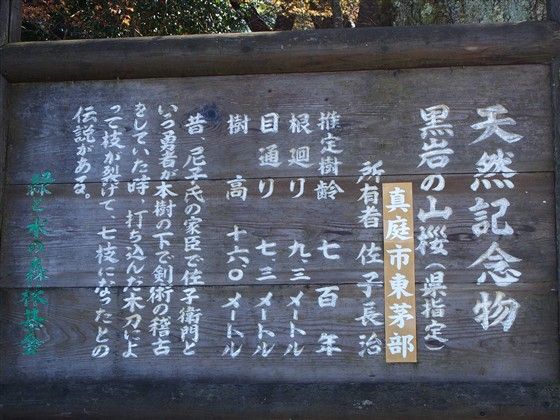 天然記念物
黒岩の山桜(県指定)
真庭市東茅部
所有者 佐子長治
推定樹齢 七百年
根廻り 九.三メートル
目通り 七.三メートル
樹高 十六.〇メートル
昔 尼子氏の家臣で佐子衛門と
いう勇者が本樹の下で剣術の稽古
をしていた時、打ち込んだ木刀によ
って枝が裂けて、七枝になったとの
伝説がある。
緑と水の森林基金